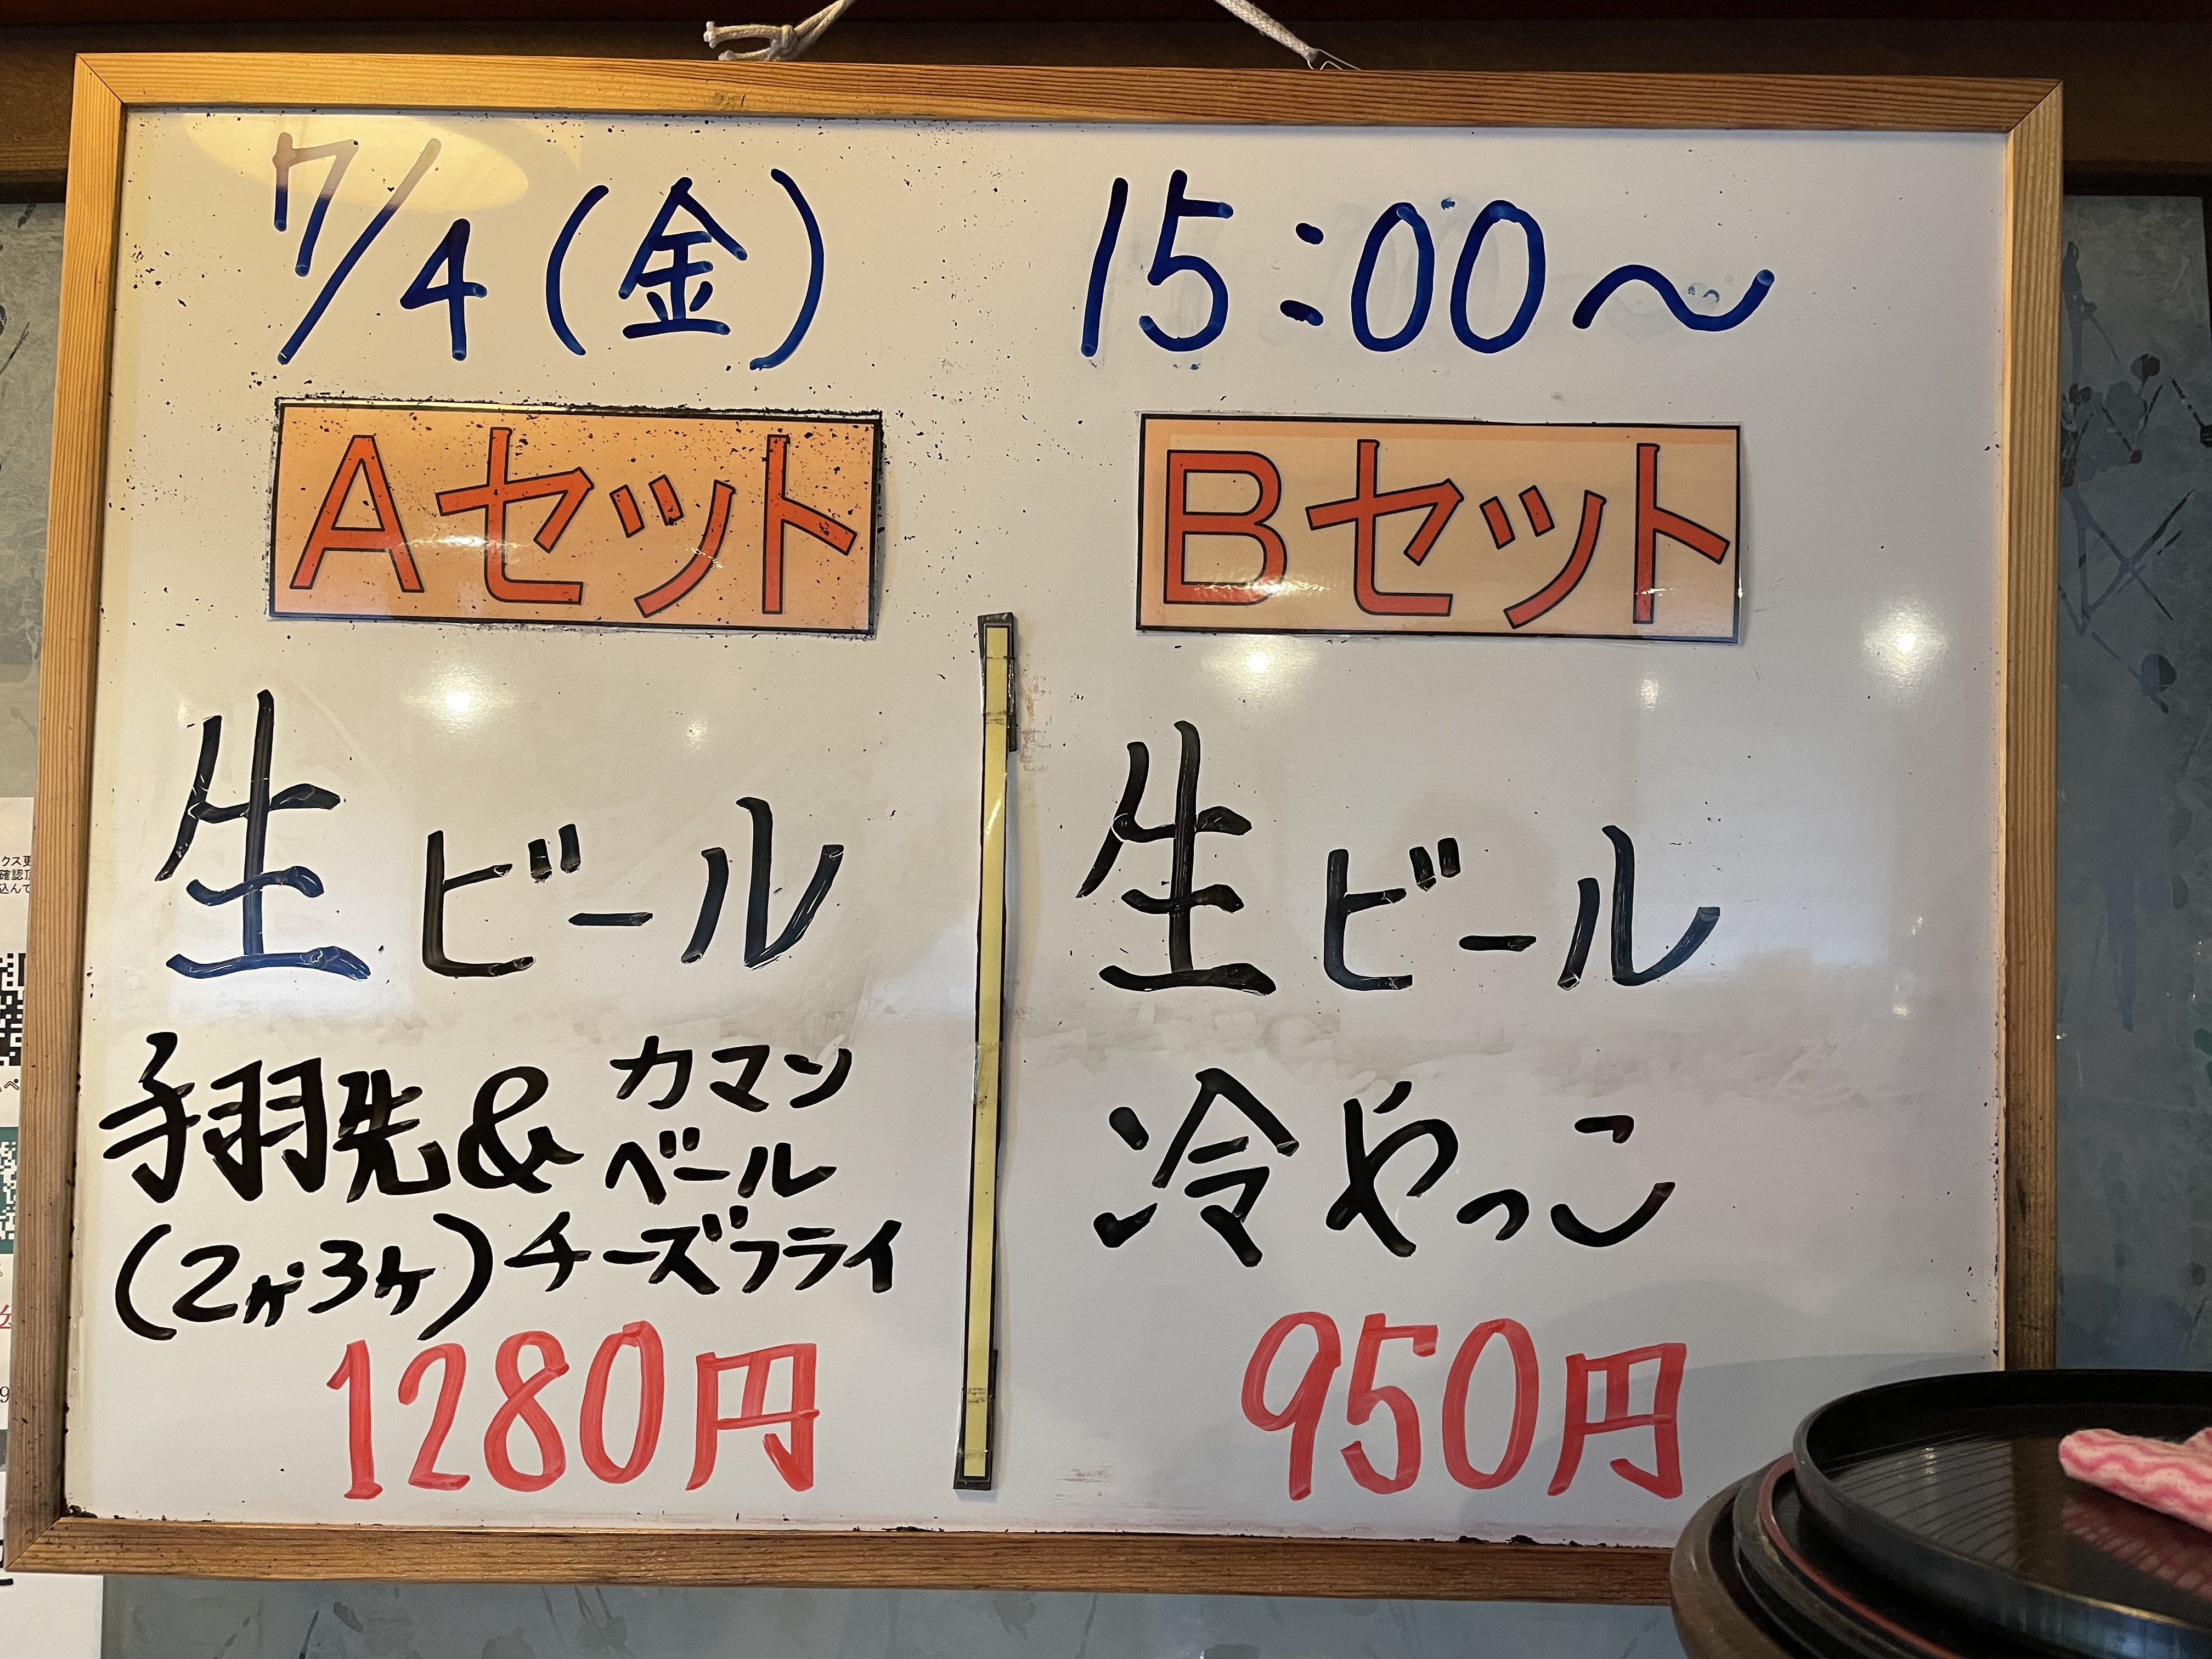 7/4(金) 15:00〜
Aセット
生ビール
手羽先&カマンベール
(2ヶ3ヶ)チーズフライ
1280円
Bセット
生ビール
冷やっこ
950円